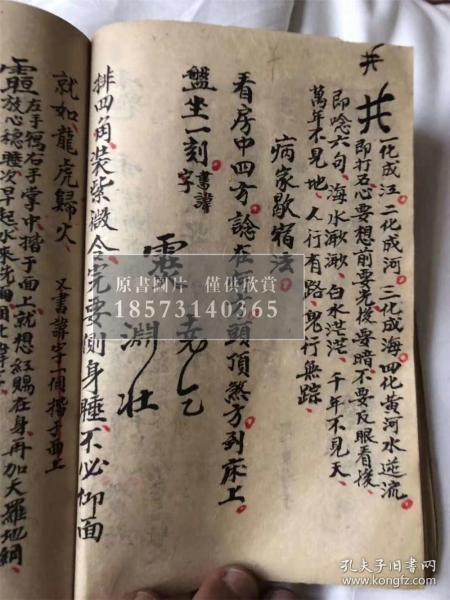 一化成江、二化成河、三化成海、四化黄河水逆流、
即打石心要想前要光後要暗、不要反眼看後、
即唸六句、海水漱漱、白水茫茫、千年不見天、
萬年不見地、人行有路鬼行無踪、
病家歇宿法
看房中四方
頭頂煞方到床上
盤坐一刻書諱字
排四角、裝紫微合完要側身睡、不必仰面
就如龍虎歸火、又書諱字一個揩于面上
左手寫右手掌中揩于面上就想紅賜在身再加天羅地網
放心穩睡次早起水來先
原書圖片 僅供欣賞
18573140365
孔夫子旧书网
www.kongfz.com